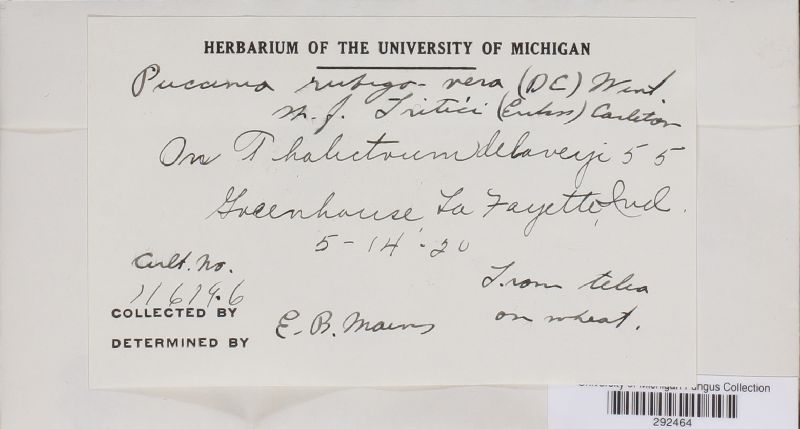 HERBARIUM OF THE UNIVERSITY OF MICHIGAN
Puccinia rubigo-vera (DC) Wint
n. f. Tritici (Erikss) Carleton
On Thalictrum delavayi 55
Greenhouse, La Fayette, Ind.
5-14-20
Cult. No.
11619.6
From telia
on wheat.
COLLECTED BY
E. B. Mains
DETERMINED BY
University of Michigan Fungus Collection
292464